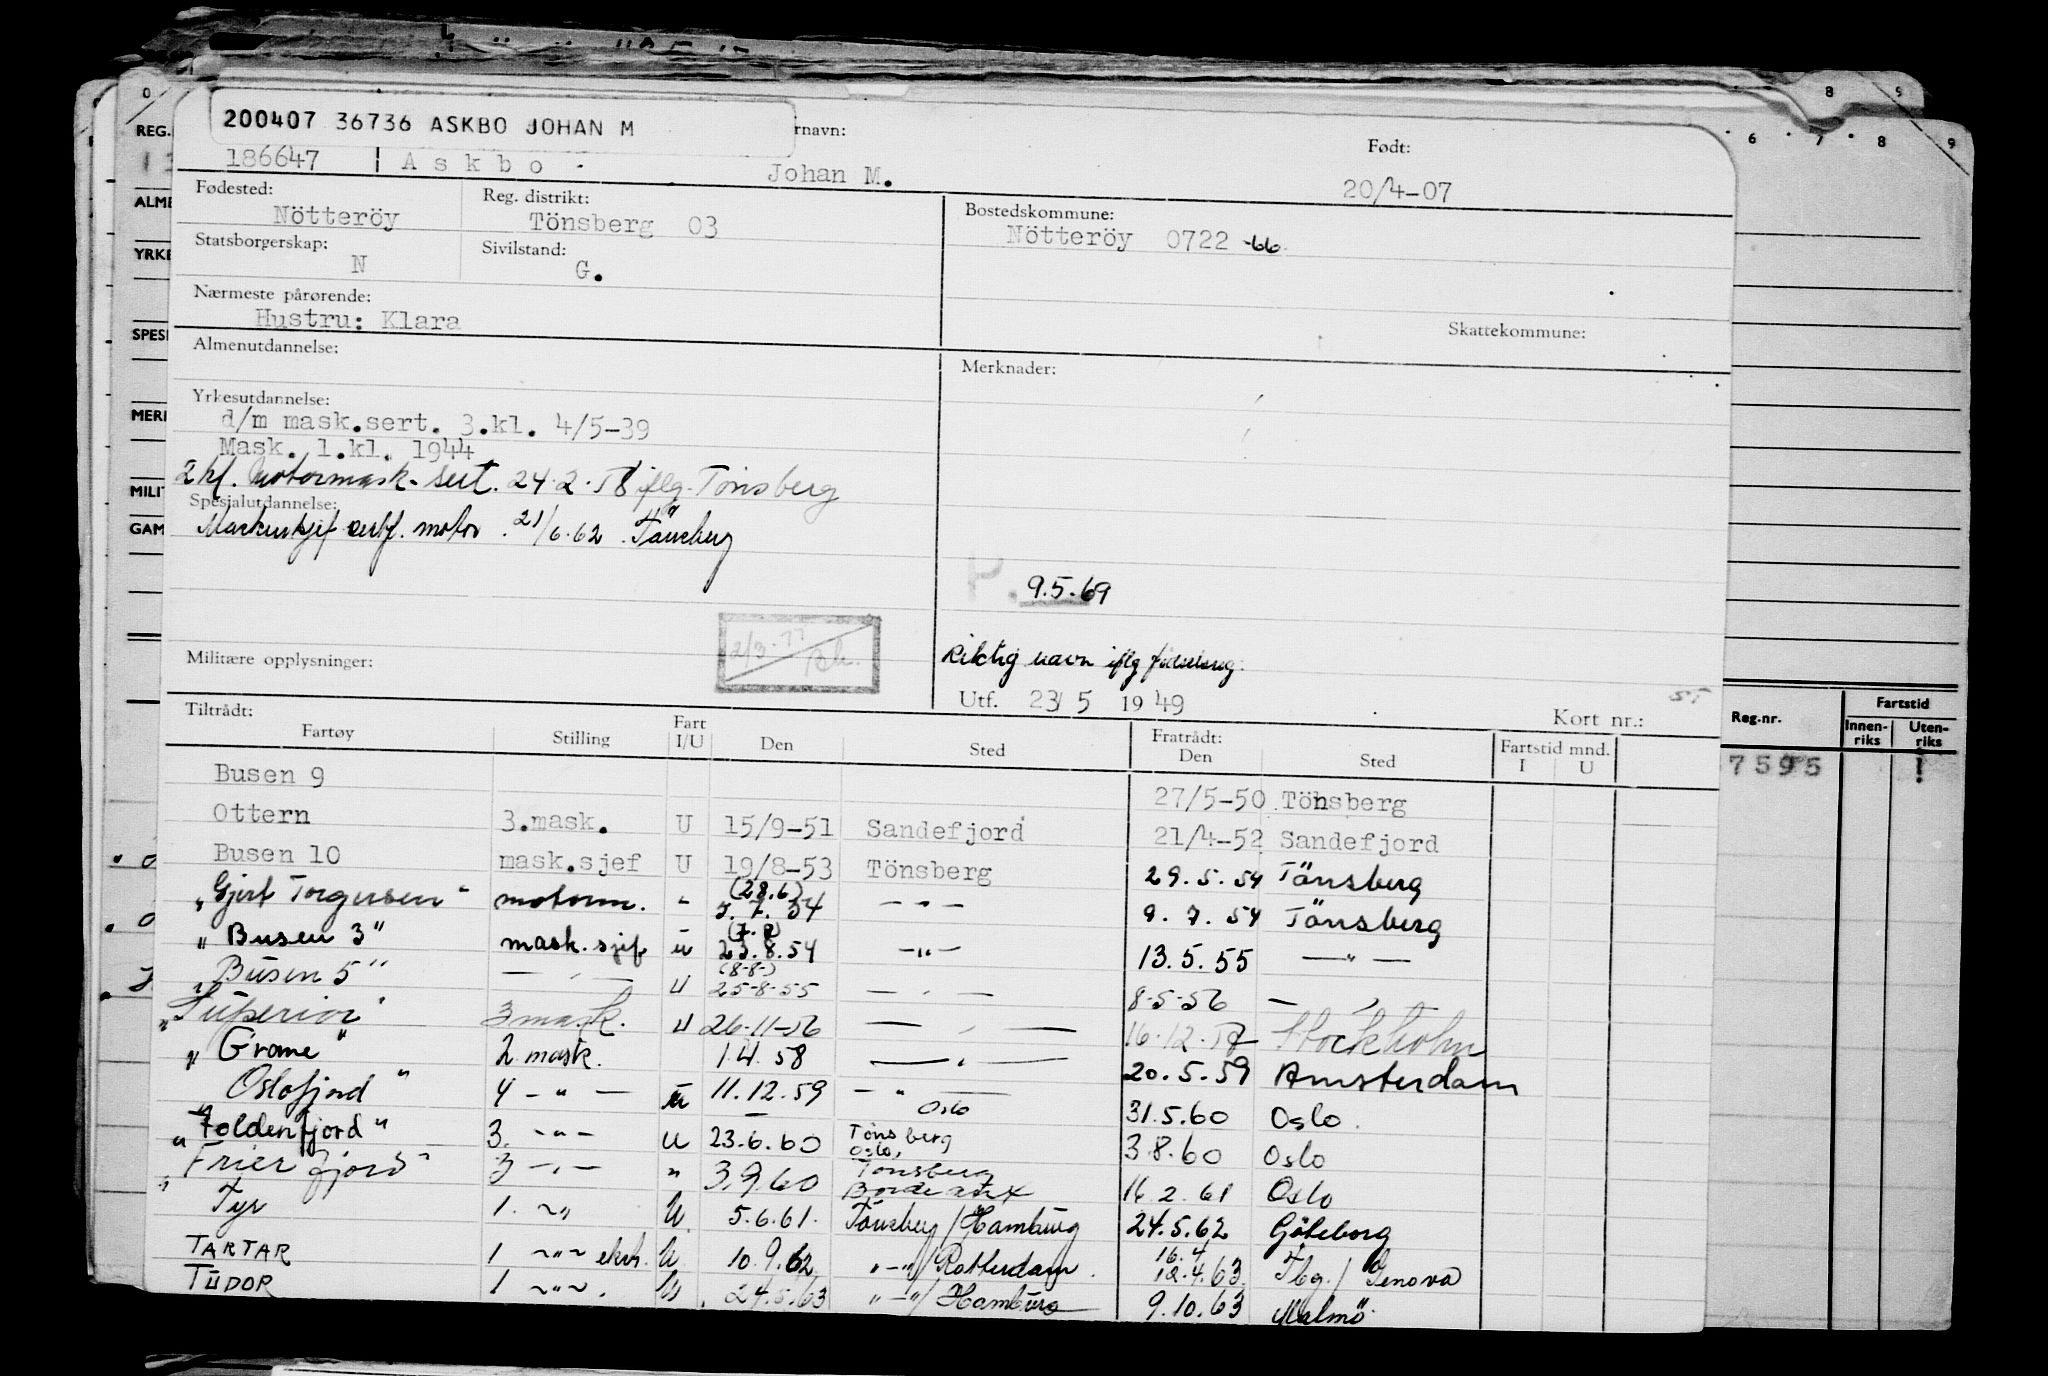 200407 36736 ASKBO JOHAN M
rnavn:
Født:
186647 Askbo Johan M. 20/4-07
Fødested: Nötteröy
Reg. distrikt: Tönsberg 03
Bostedskommune: Nötteröy 0722 -66
Statsborgerskap: N
Sivilstand: G.
Nærmeste pårørende:
Hustru: Klara
Skattekommune:
Almenutdannelse:
Merknader:
Yrkesutdannelse:
d/m mask.sert. 3.kl. 4/5-39
Mask. 1.kl. 1944
2 kl. Motormask. sert. 24.2.58 iflg. Tönsberg
Spesialutdannelse:
Maskinsjef sertf. motor. 21/6.62. Tönsberg
P. 9.5.69
Militære opplysninger:
Riktig navn iflg fødselsreg.
Utf. 23/5 1949
Kort nr.:
Tiltrådt:
Fartøy Stilling Fart I/U Den Sted Fratrådt: Den Sted Fartstid mnd. I U
Busen 9 27/5-50 Tönsberg
Ottern 3.mask. U 15/9-51 Sandefjord 21/4-52 Sandefjord
Busen 10 mask.sjef U 19/8-53 Tönsberg 29.5.54 Tönsberg
"Gjert Torgersen" motorm. " (28.6) 5.7.54 — " — 9.7.54 Tönsberg
"Busen 3" mask.sjef u 23.8.54 — " — 13.5.55 — " —
"Busen 5" — " — U (8-8-) 25-8-55 — " — 8-5-56 — "
"Superior" 3 mask. U 26-11-56 — " — Stockholm
"Grome" 2 mask. 1.4.58 — " — 20.5.59 Amsterdam
Oslofjord" 4 — " — u 11.12.59 — " — Oslo 31.5.60 Oslo.
"Foldenfjord" 3. — " — U 23.6.60 Tönsberg Oslo, 3.8.60 Oslo
"Frierfjord" 3 — " — " 3.9.60 Tönsberg Bordeaux 16.2.61 Oslo
Tyr 1. — " U 5.6.61. Tönsberg/Hamburg 24.5.62 Göteborg
TARTAR 1 — " — ekstr. U 10.9.62 " — "/Rotterdam. 16.4 12.4.63. Tbg./Genova
TUDOR 1 — " —. U 24.5.63 " — "/Hamburg 9.10.63 Malmö
REG.
ALME
YRKE
SPESI
MERI
MILIT
GAM
6 7 8 9
Reg.nr. Fartstid
Innen-riks Uten-riks
7595